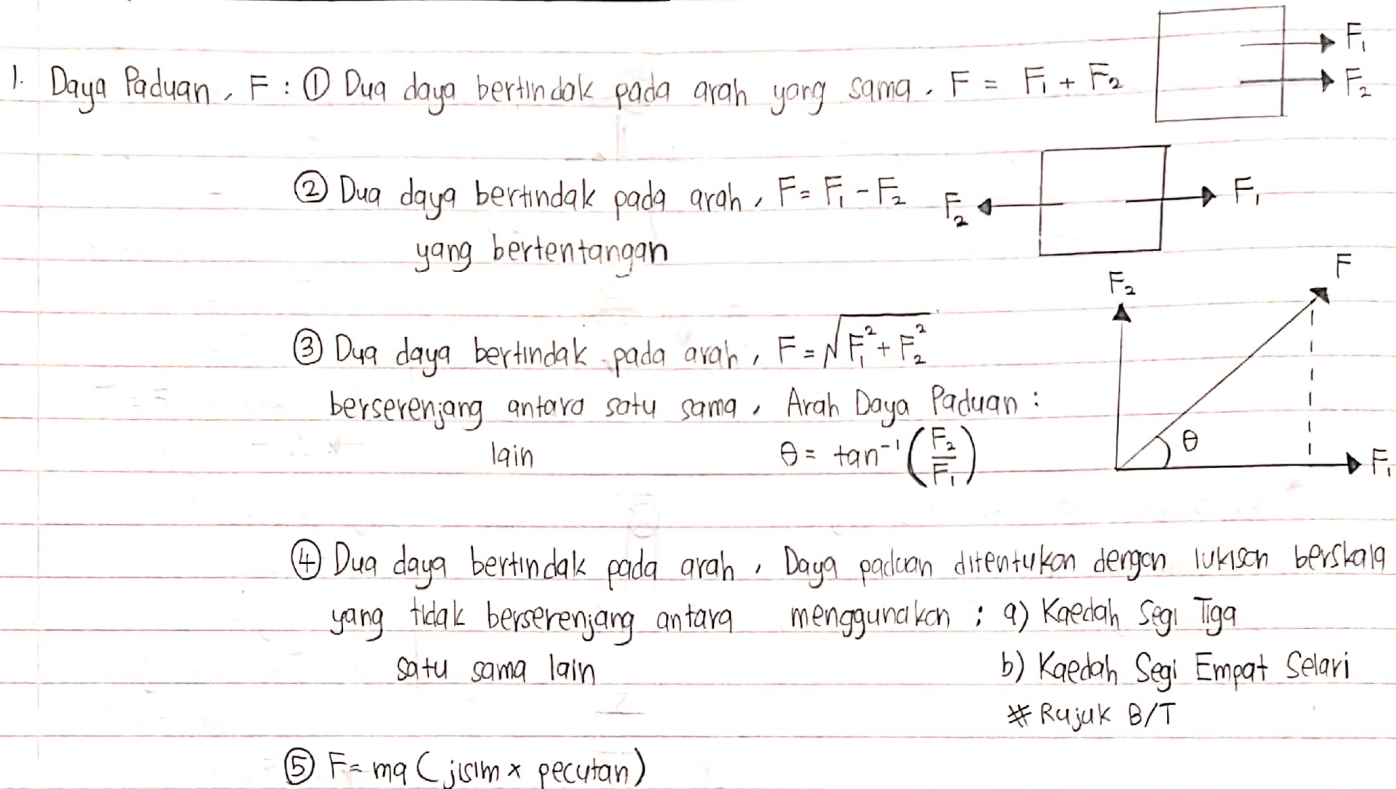 1. Daya Paduan, F : ① Dua daya bertindak pada arah yang sama. F = F₁ + F₂
F₁
F₂
② Dua daya bertindak pada arah, F = F₁ - F₂
yang bertentangan
F₂
F₁
③ Dua daya bertindak pada arah, F = √F₁² + F₂²
berserenjang antara satu sama, Arah Daya Paduan :
lain θ = tan⁻¹ (F₂/F₁)
F₂
F
θ
F₁
④ Dua daya bertindak pada arah, Daya paduan ditentukan dengan lukisan berskala
yang tidak berserenjang antara menggunakan : a) Kaedah Segi Tiga
satu sama lain b) Kaedah Segi Empat Selari
* Rujuk B/T
⑤ F = ma (jisim x pecutan)